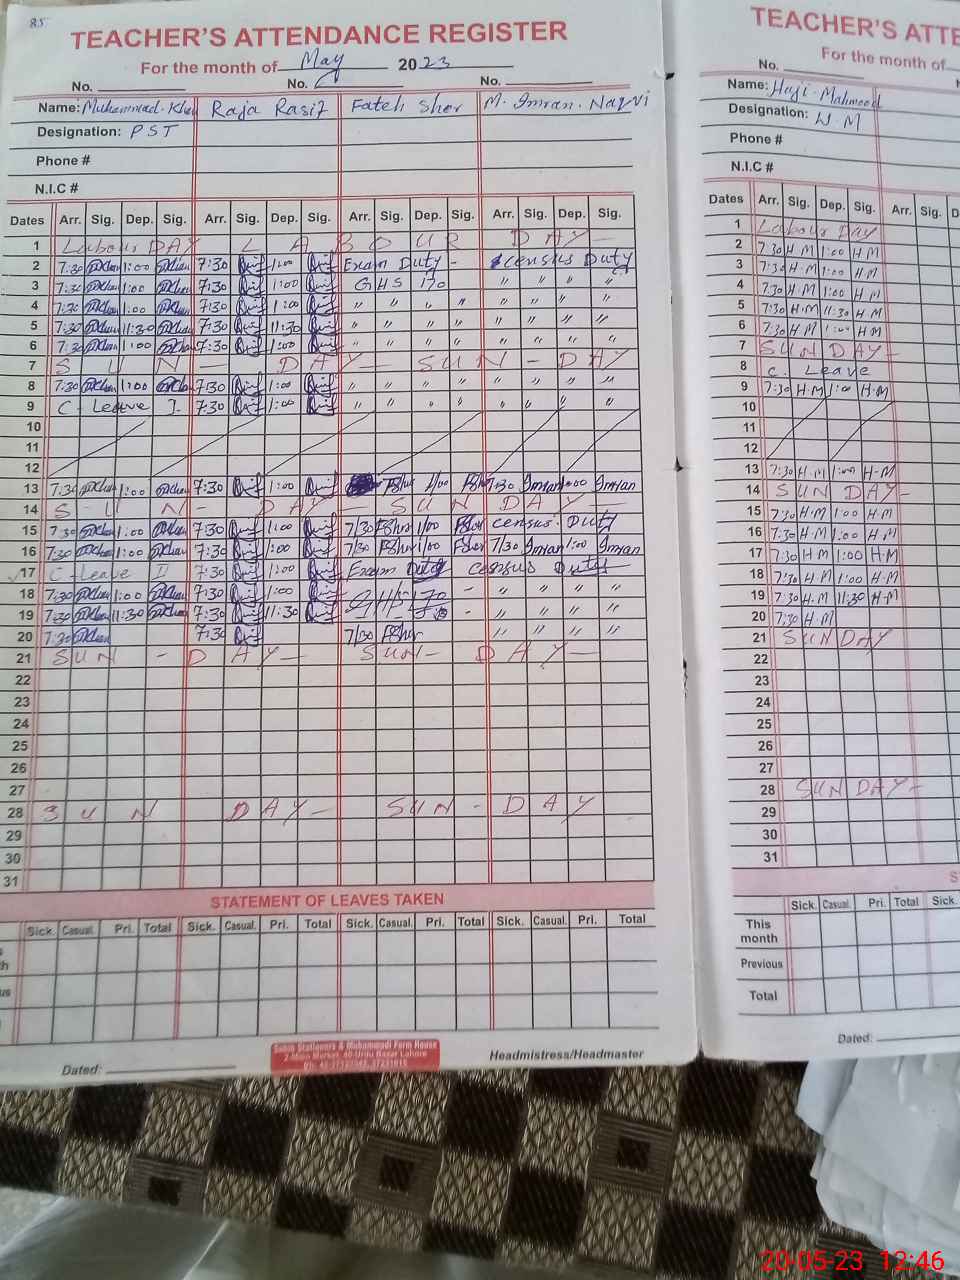 85
TEACHER'S ATTENDANCE REGISTER
For the month of May 2023
No. No. No.
Name: Muhammad-Khan Raja Rasif Fateh Sher M. Imran. Naqvi
Designation: PST
Phone #
N.I.C #
Dates Arr. Sig. Dep. Sig. Arr. Sig. Dep. Sig. Arr. Sig. Dep. Sig. Arr. Sig. Dep. Sig.
1 Labour DAY L A B O U R D A Y —
2 7:30 1:00 7:30 1:00 Exam Duty - census Duty
3 7:30 1:00 7:30 1:00 GHS 170 " " " "
4 7:30 1:00 7:30 1:00 " " " " " " " "
5 7:30 11:30 7:30 11:30 " " " " " " " "
6 7:30 1:00 7:30 1:00 " " " " " " " "
7 S U N — D A Y — S U N - D A Y
8 7:30 1:00 7:30 1:00 " " " " " " " "
9 C. Leave I. 7:30 1:00 " " " " " " " "
10
11
12
13 7:30 1:00 7:30 1:00 1/00 7:30 Imran 1:00 Imran
14 S U N - D A Y — S U N D A Y —
15 7:30 1:00 7:30 1:00 7/30 FShr 1/00 FSher census. Duty
16 7:30 1:00 7:30 1:00 7/30 FShr 1/00 FSher 7/30 Imran 1:00 Imran
17 C-Leave II 7:30 1:00 Exam Duty census Duty
18 7:30 1:00 7:30 1:00 GHS 170 - " " " "
19 7:30 11:30 7:30 11:30 - " " " "
20 7:30 7:30 7/30 FSher " " " "
21 SUN - D A Y — SUN - D A Y —
22
23
24
25
26
27
28 S U N D A Y — S U N - D A Y
29
30
31
STATEMENT OF LEAVES TAKEN
Sick. Casual. Pri. Total Sick. Casual. Pri. Total Sick. Casual. Pri. Total Sick. Casual. Pri. Total
Dated:
Sabin Stationers & Muhammadi Form House
2-Main Market, 40-Urdu Bazar Lahore
Headmistress/Headmaster
TEACHER'S ATTE
For the month of
No.
Name: Haji-Mahmood
Designation: W.M
Phone #
N.I.C #
Dates Arr. Sig. Dep. Sig. Arr. Sig. D
1 Labour Day
2 7:30 H.M 1:00 H-M
3 7:30 H-M 1:00 H-M
4 7:30 H-M 1:00 H-M
5 7:30 H.M 11:30 H-M
6 7:30 H-M 1:00 H-M
7 SUN DAY -
8 C. Leave
9 7:30 H.M 1:00 H-M
10
11
12
13 7:30 H-M 1:00 H-M
14 SUN DAY -
15 7:30 H-M 1:00 H-M
16 7:30 H-M 1:00 H-M
17 7:30 H-M 1:00 H-M
18 7:30 H-M 1:00 H-M
19 7:30 H.M 11:30 H-M
20 7:30 H-M
21 SUN DAY
22
23
24
25
26
27
28 SUN DAY -
29
30
31
S
Sick. Casual. Pri. Total Sick.
This month
Previous
Total
Dated:
20-05-23 12:46